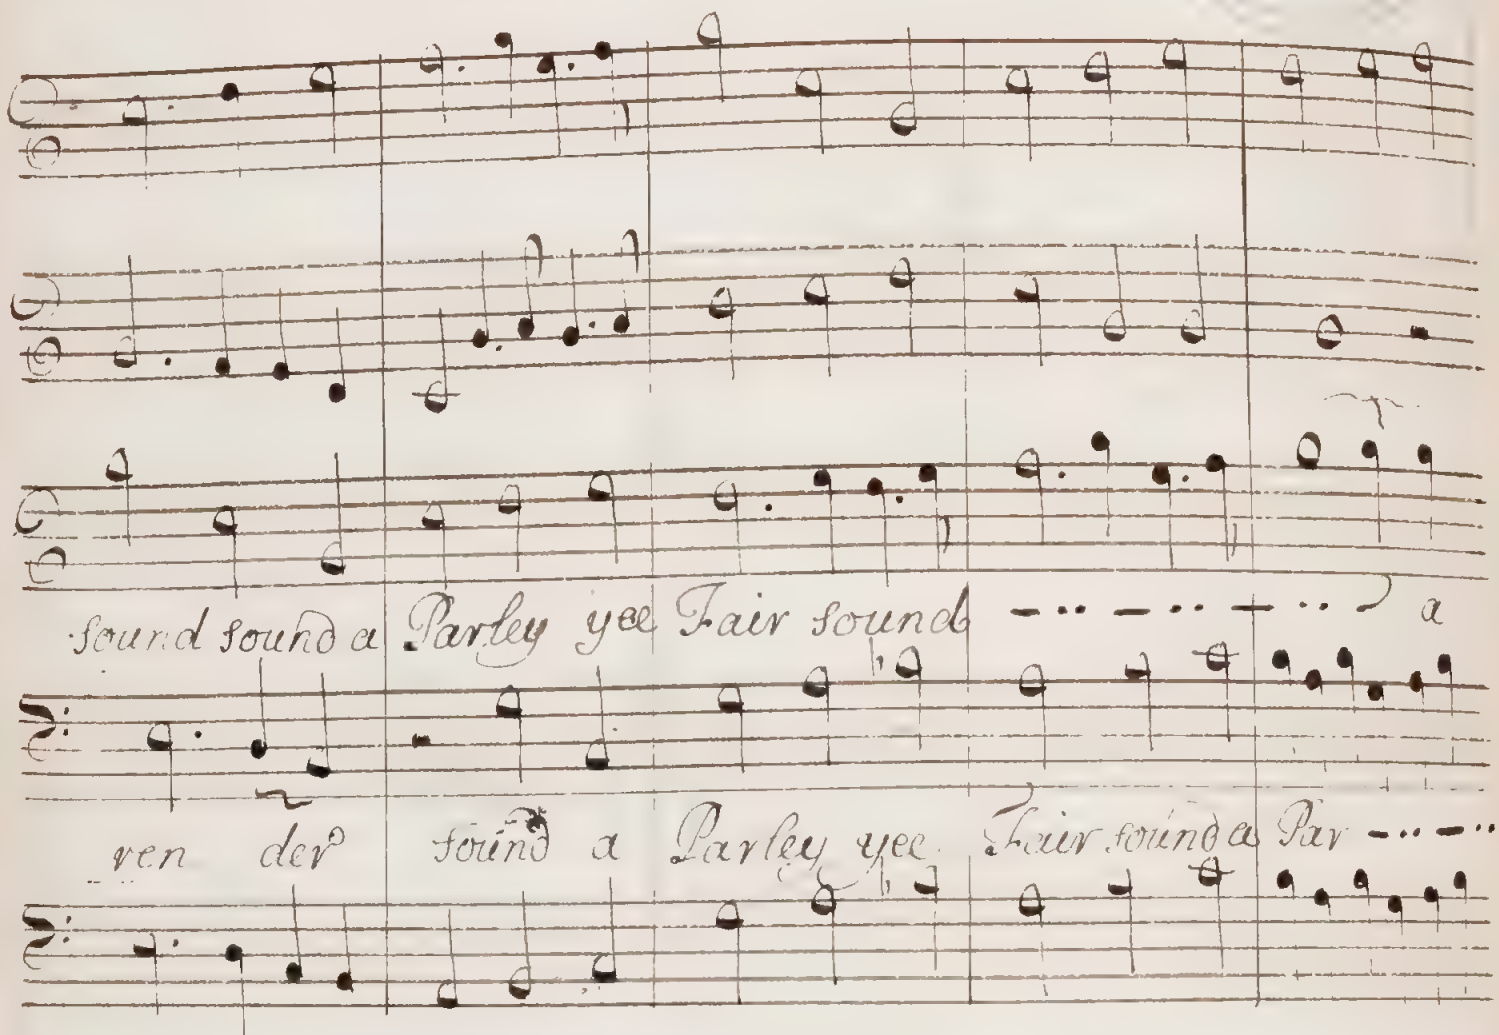 sound sound a Parley yee Fair sound a
ren der sound a Parley yee Fair sound a Par